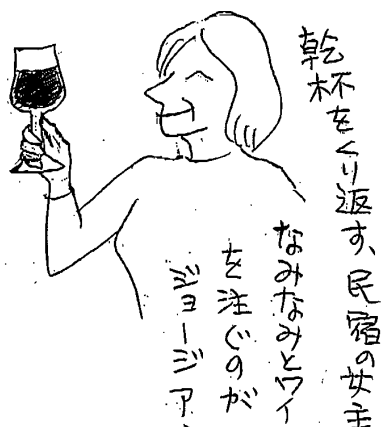 乾杯をくり返す、民宿の女主
なみなみとワイ
を注ぐのが
ジョージア